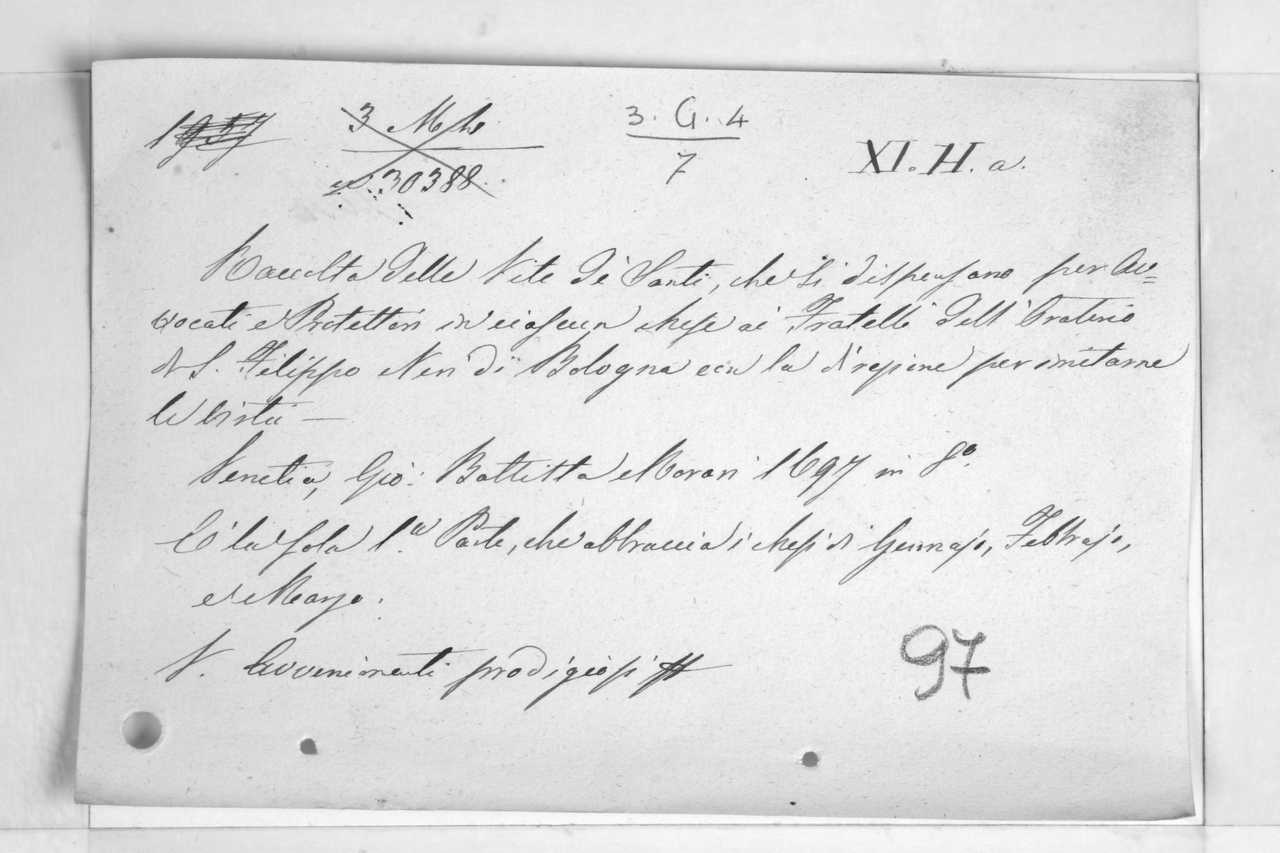 3. G. 4
7
XI. H. a.
30388
Raccolta delle Vite de' Santi, che si dispensano per Av=
vocati e Protettori in ciascun Mese ai Fratelli dell' Oratorio
di S. Filippo Neri di Bologna con la per imitarne
le virtù —
Venetia, Gio: Battista 1697 in 8°.
È la sola 1.a Parte, che abbraccia i Mesi di Gennajo, Febbrajo,
e Marzo.
V. Avvenimenti prodigiosi
97